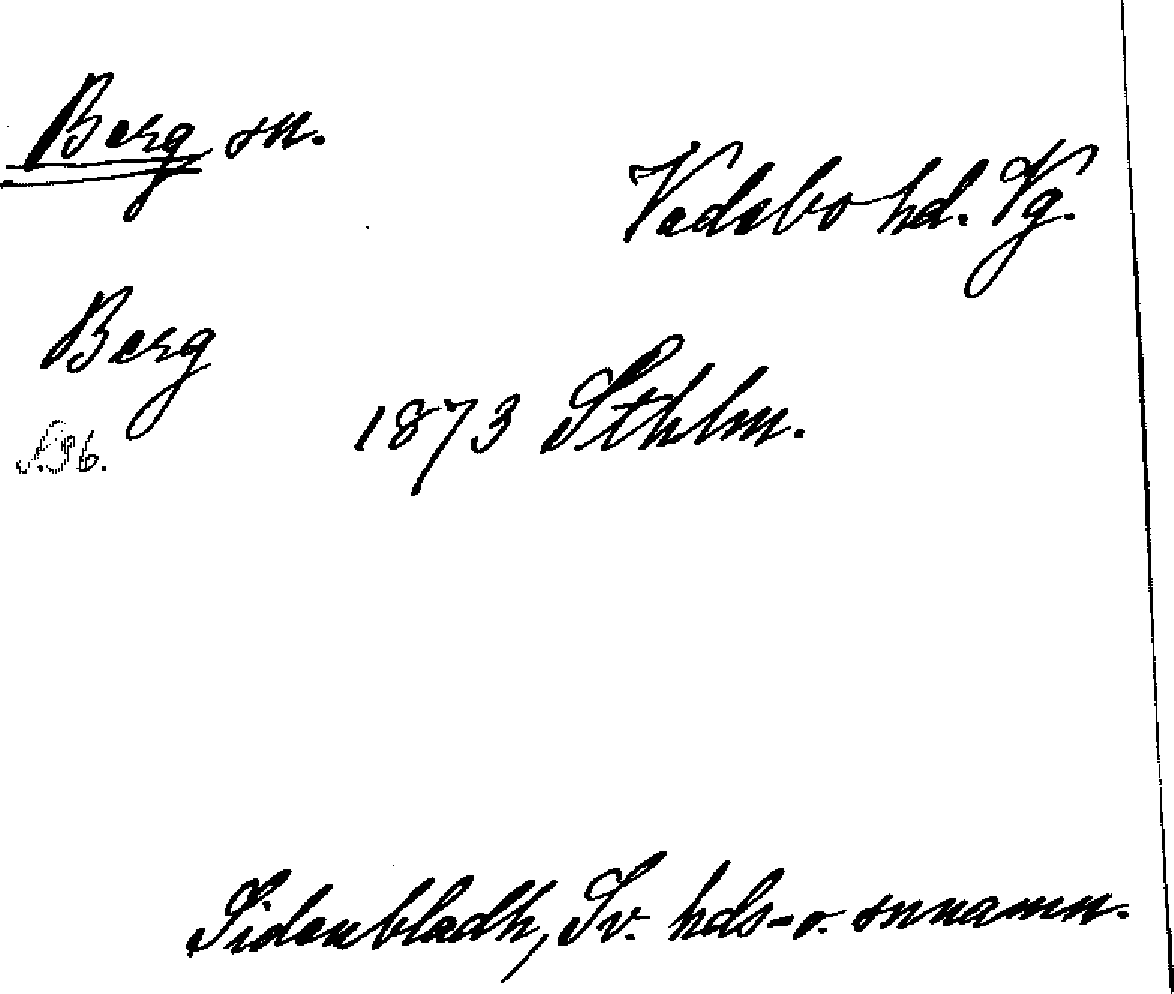 Berg sn.
Vadsbo hd. Vg.
Berg
1873 Sthlm.
Sidenbladh, Sv. hds- o. snnamn.